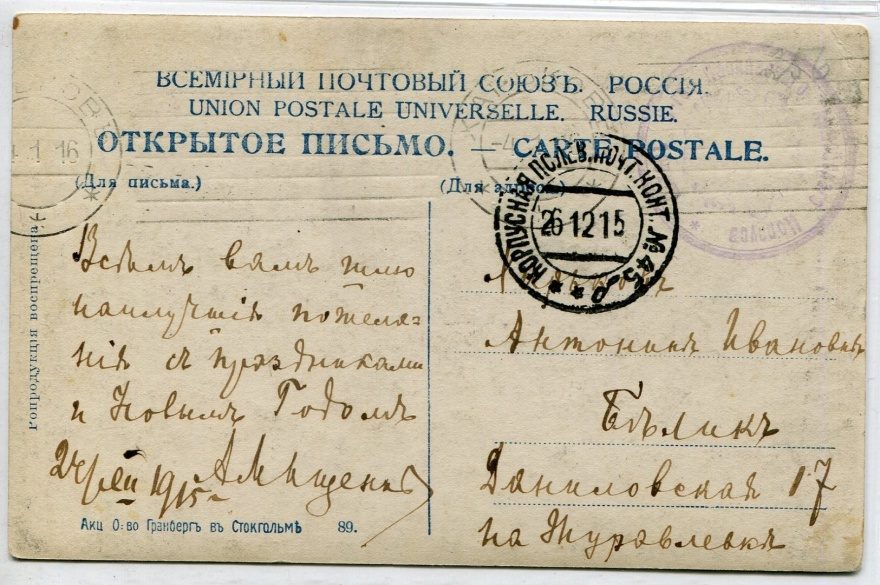 ВСЕМІРНЫЙ ПОЧТОВЫЙ СОЮЗЪ. РОССІЯ.
UNION POSTALE UNIVERSELLE. RUSSIE.
ОТКРЫТОЕ ПИСЬМО. — CARTE POSTALE.
(Для письма.)
(Для адреса.)
1 16
КОРПУСНАЯ ПОЛЕВ. ПОЧТ. КОНТ. № 45
26 12 15
Всѣмъ вамъ шлю
наилучшія пожела-
нія съ праздниками
и Новымъ Годомъ
1915
АМищенко
Харьковъ
Антонинѣ Ивановнѣ
Бѣликъ
Даниловская 17
на Журавлевкѣ
Репродукція воспрещена
Акц О-во Гранбергъ въ Стокгольмѣ 89.